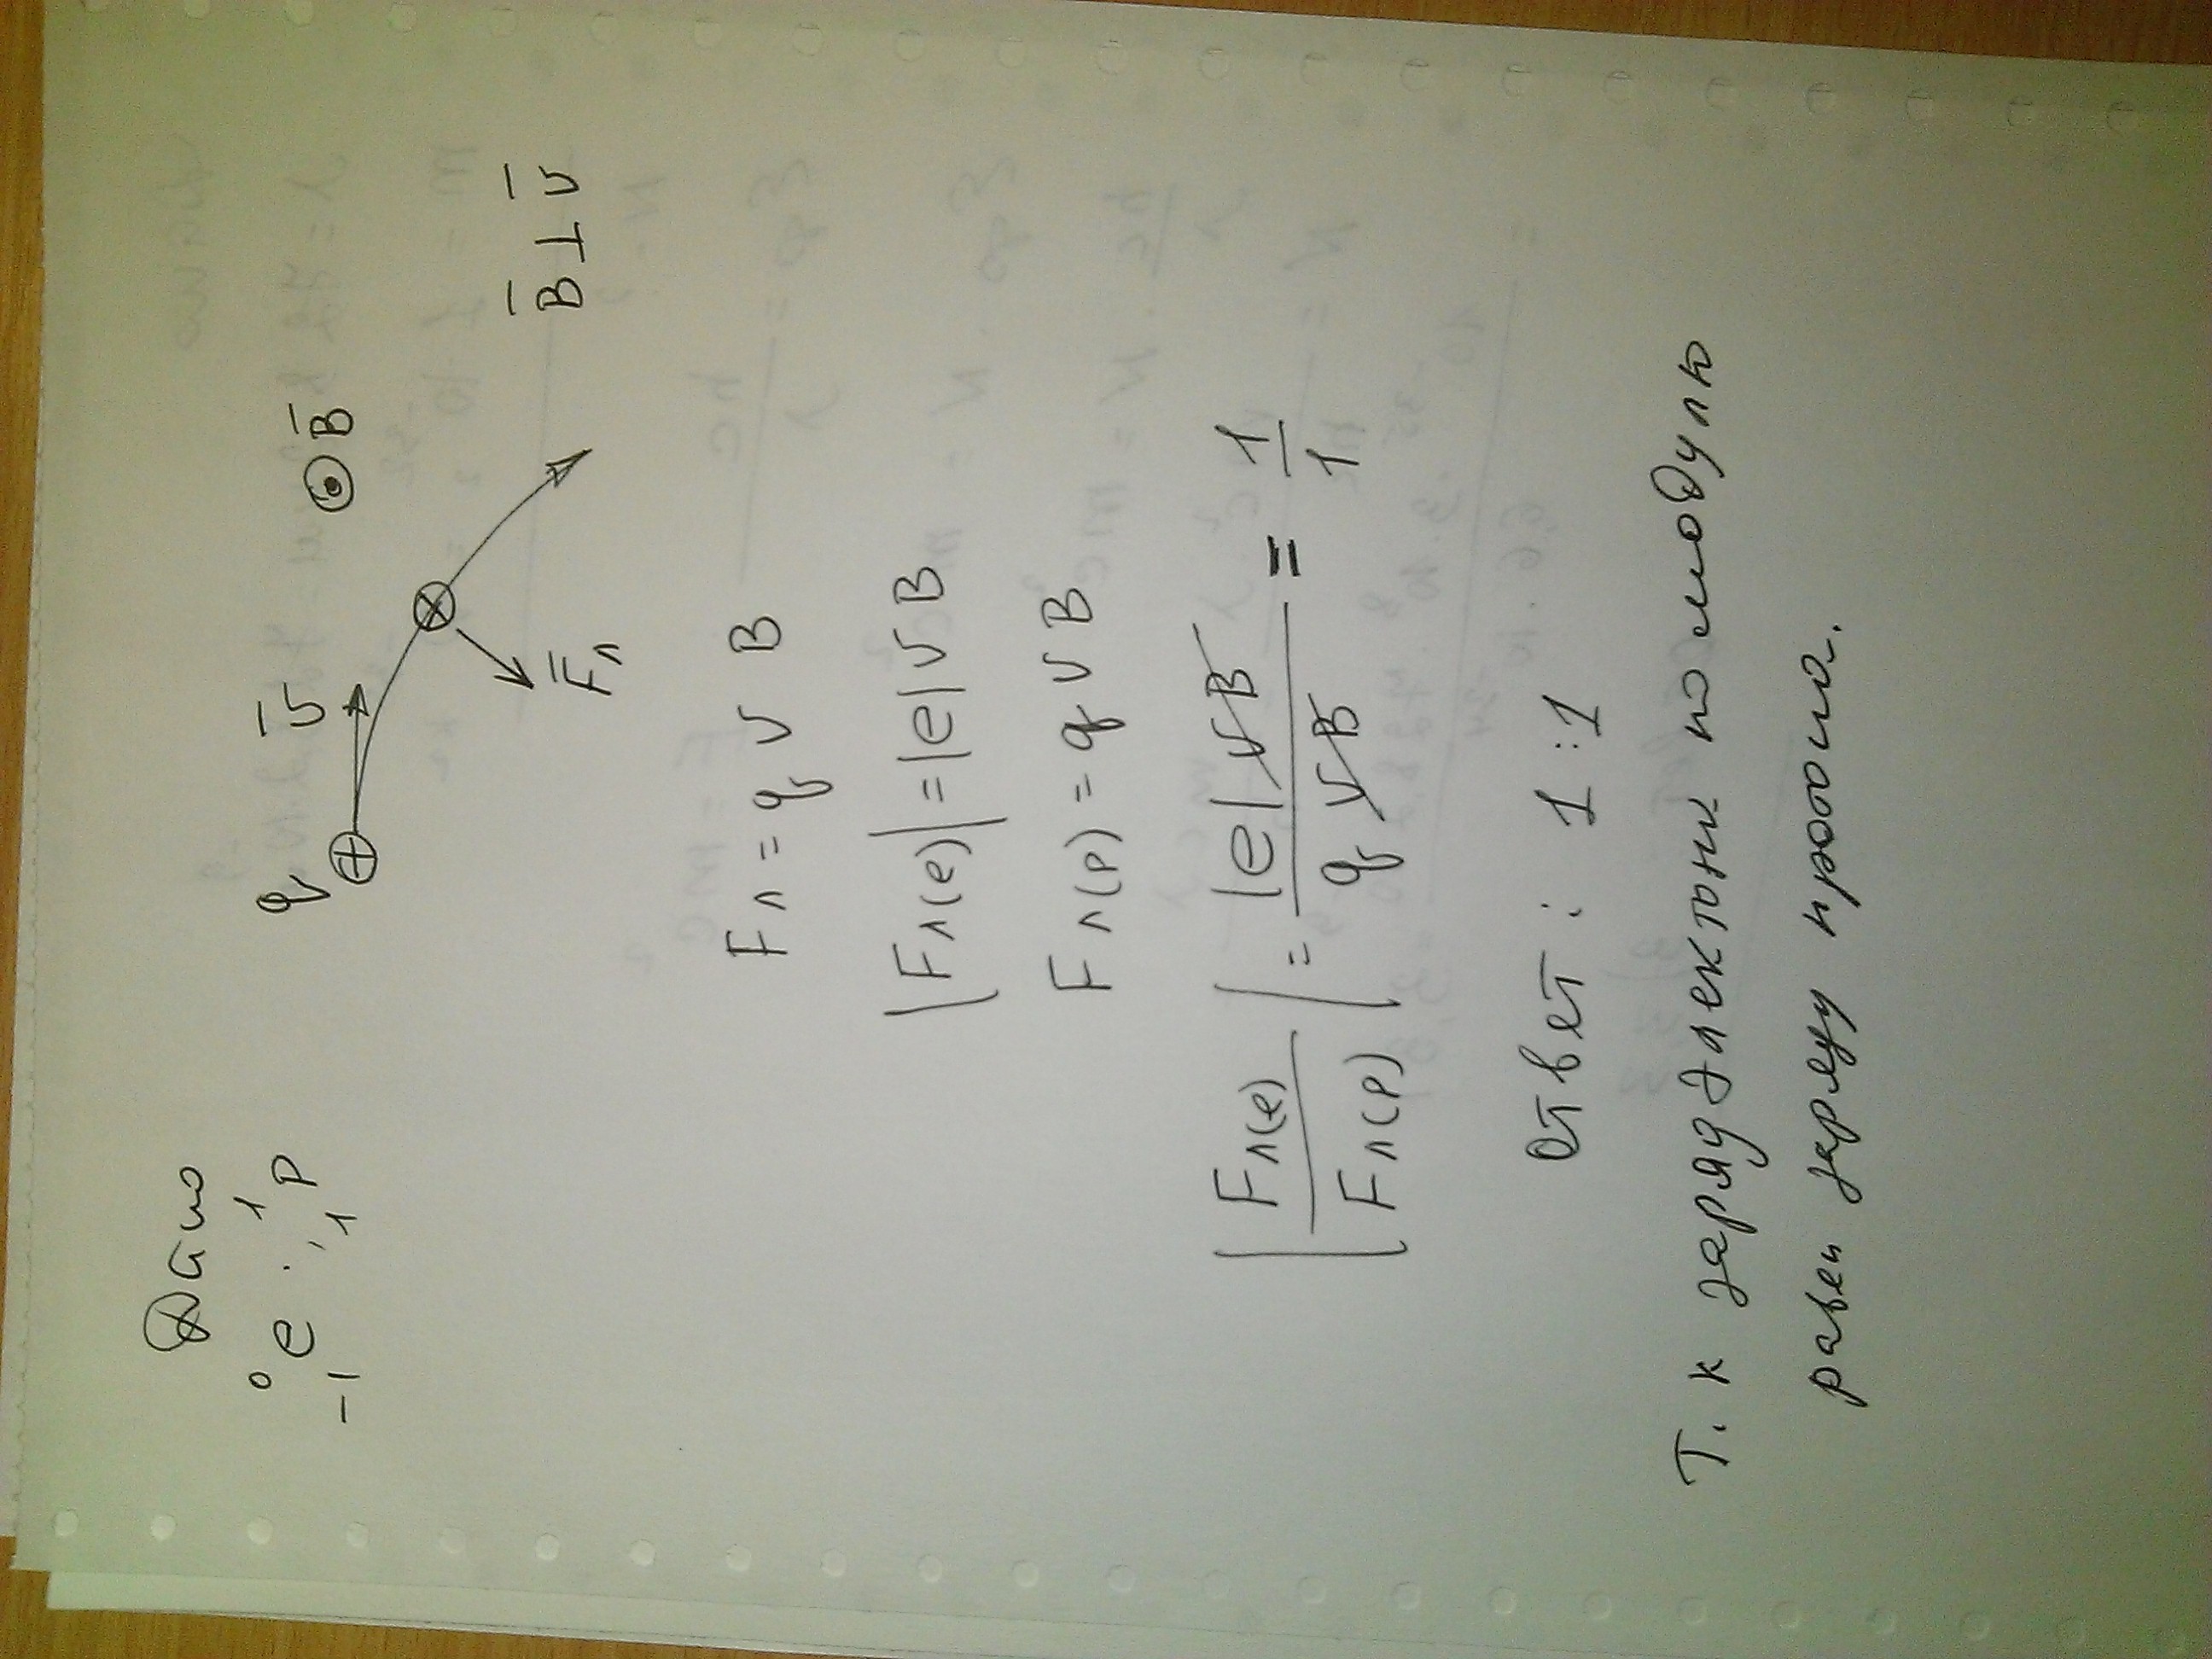 Дано
⁰₋₁e ; ¹₁P
q v̅ ⊙ B̅
F̅л
B̅ ⊥ v̅
Fл = q v B
|Fл(e)| = |e| v B
Fл(p) = q v B
|Fл(e) / Fл(p)| = |e| v B / q v B = 1/1
Ответ: 1 : 1
Т. к заряд электони по модулю
равен заряду протона.